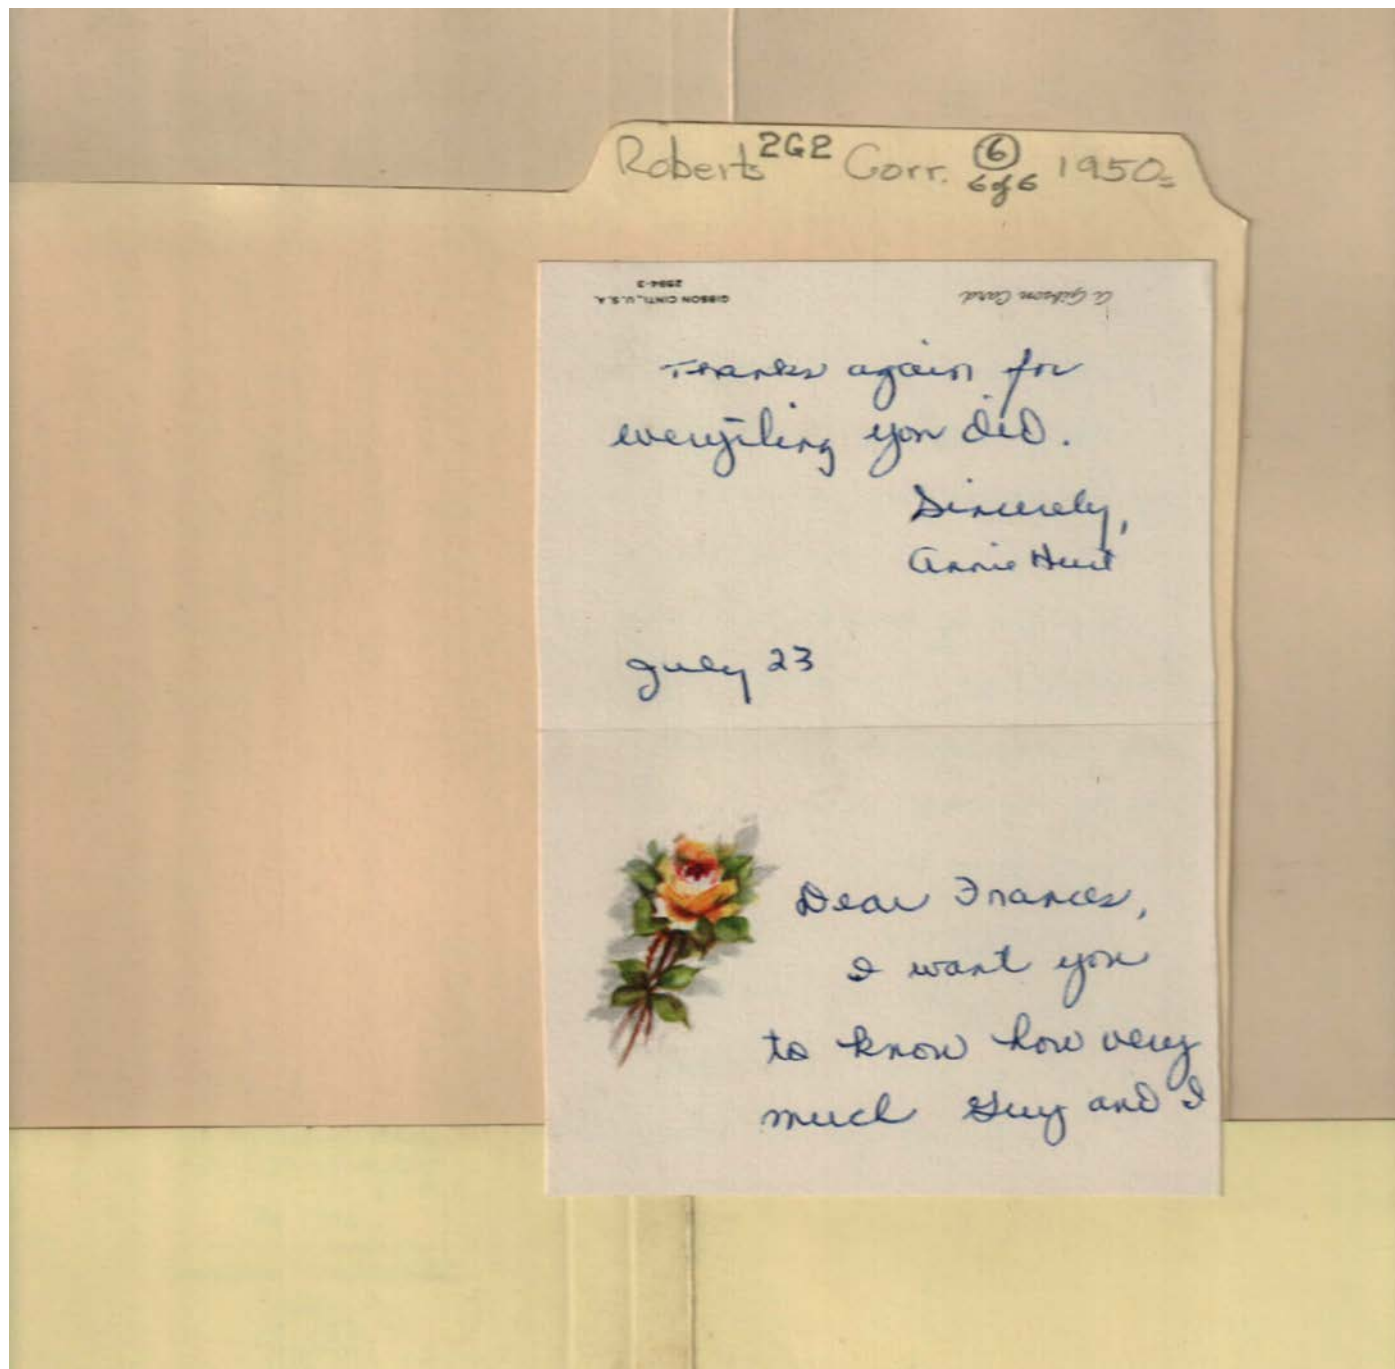 Roberts 2G2 Corr. 6 1950s
6 of 6
A Gibson Card
GIBSON CINTI., U.S.A.
2594-3
Thanks again for
everything you did.
Sincerely,
Annie Hurt
July 23
Dear Frances,
I want you
to know how very
much Guy and I